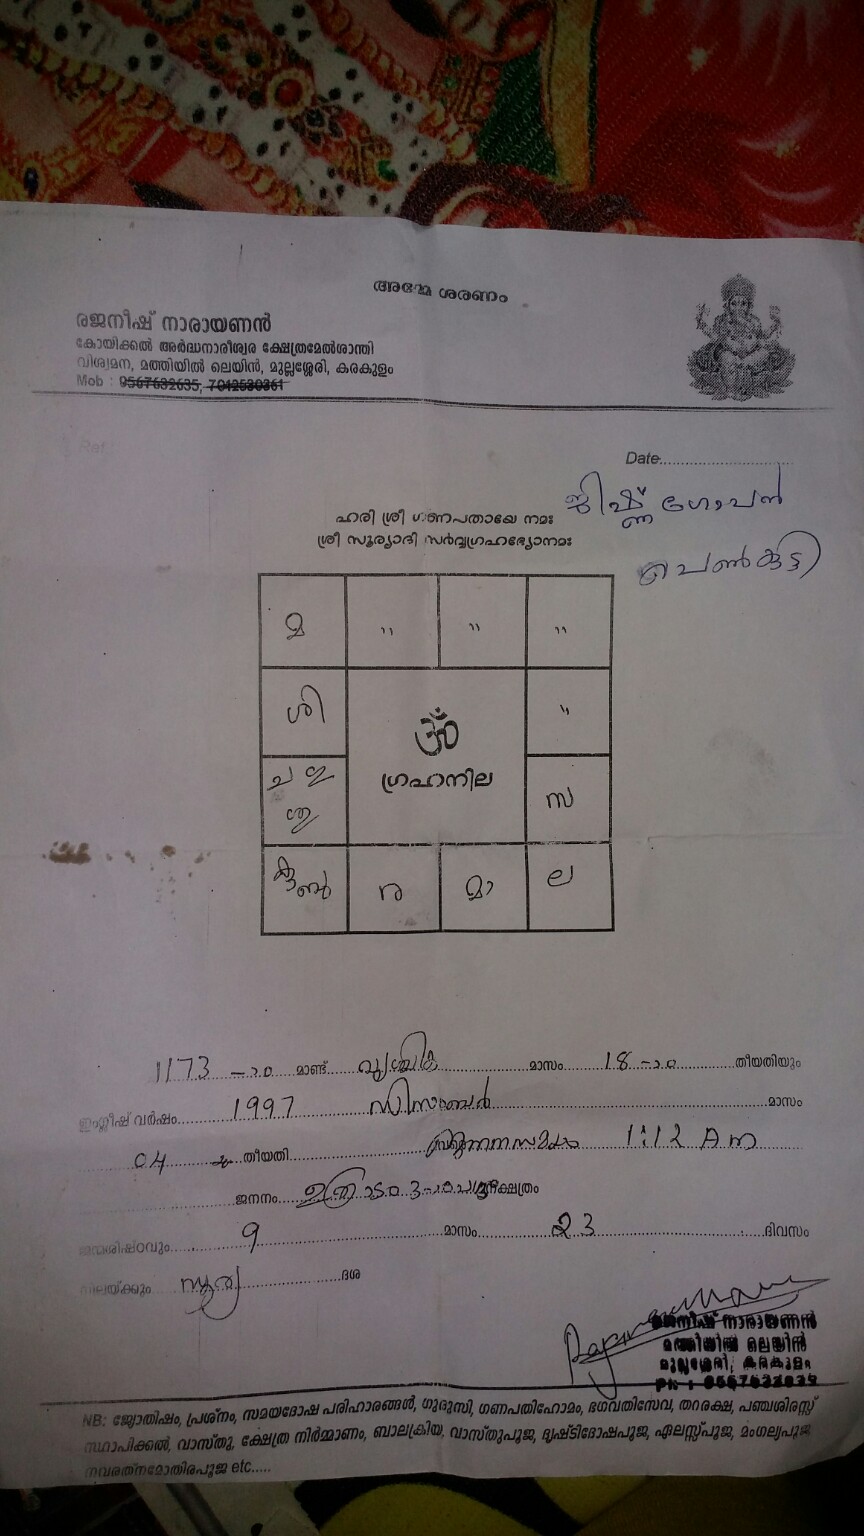 അമ്മേ ശരണം
രജനീഷ് നാരായണൻ
കോയിക്കൽ അർദ്ധനാരീശ്വര ക്ഷേത്രമേൽശാന്തി
വിശ്വമന, മത്തിയിൽ ലെയിൻ, മുല്ലശ്ശേരി, കരകുളം
Mob : 9567632635, 7012530361
Ref
Date
ഹരി ശ്രീ ഗണപതായേ നമഃ
ശ്രീ സൂര്യാദി സർവ്വഗ്രഹഭ്യോനമഃ
ജിഷ്ണു ഗോപൻ
പെൺകുട്ടി
മ " " "
ശി "
ഓം
ഗ്രഹനില
ച സ
ര മാ ല
1173 -ാം മാണ്ട് വൃശ്ചിക മാസം 18 -ാം തീയതിയും
ഇംഗ്ലീഷ് വർഷം 1997 ഡിസംബർ മാസം
04 തീയതി 1:12 Am
ജനനം ഉത്രാടം നക്ഷത്രം
ജന്മശിഷ്ഠവും 9 മാസം 23 ദിവസം
സൂര്യ ദശ
രജനീഷ് നാരായണൻ
മത്തിയിൽ ലെയിൻ
മുല്ലശ്ശേരി, കരകുളം
NB: ജ്യോതിഷം, പ്രശ്നം, സമയദോഷ പരിഹാരങ്ങൾ, ഗുരുസി, ഗണപതിഹോമം, ഭഗവതിസേവ, തറരക്ഷ, പഞ്ചശിരസ്സ്
സ്ഥാപിക്കൽ, വാസ്തു, ക്ഷേത്ര നിർമ്മാണം, ബാലക്രിയ, വാസ്തുപൂജ, ദൃഷ്ടിദോഷപൂജ, ഏലസ്സ്പൂജ, മംഗല്യപൂജ
നവരത്നമോതിരപൂജ etc.....